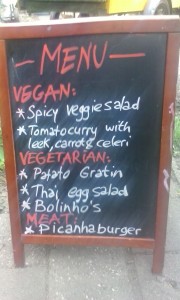 — MENU —
VEGAN:
* Spicy veggiesalad
* Tomatocurry with
leek, carrot & celeri
VEGETARIAN:
* Patato Gratin
* Thai egg salad
* Bolinho's
MEAT:
* Picanhaburger